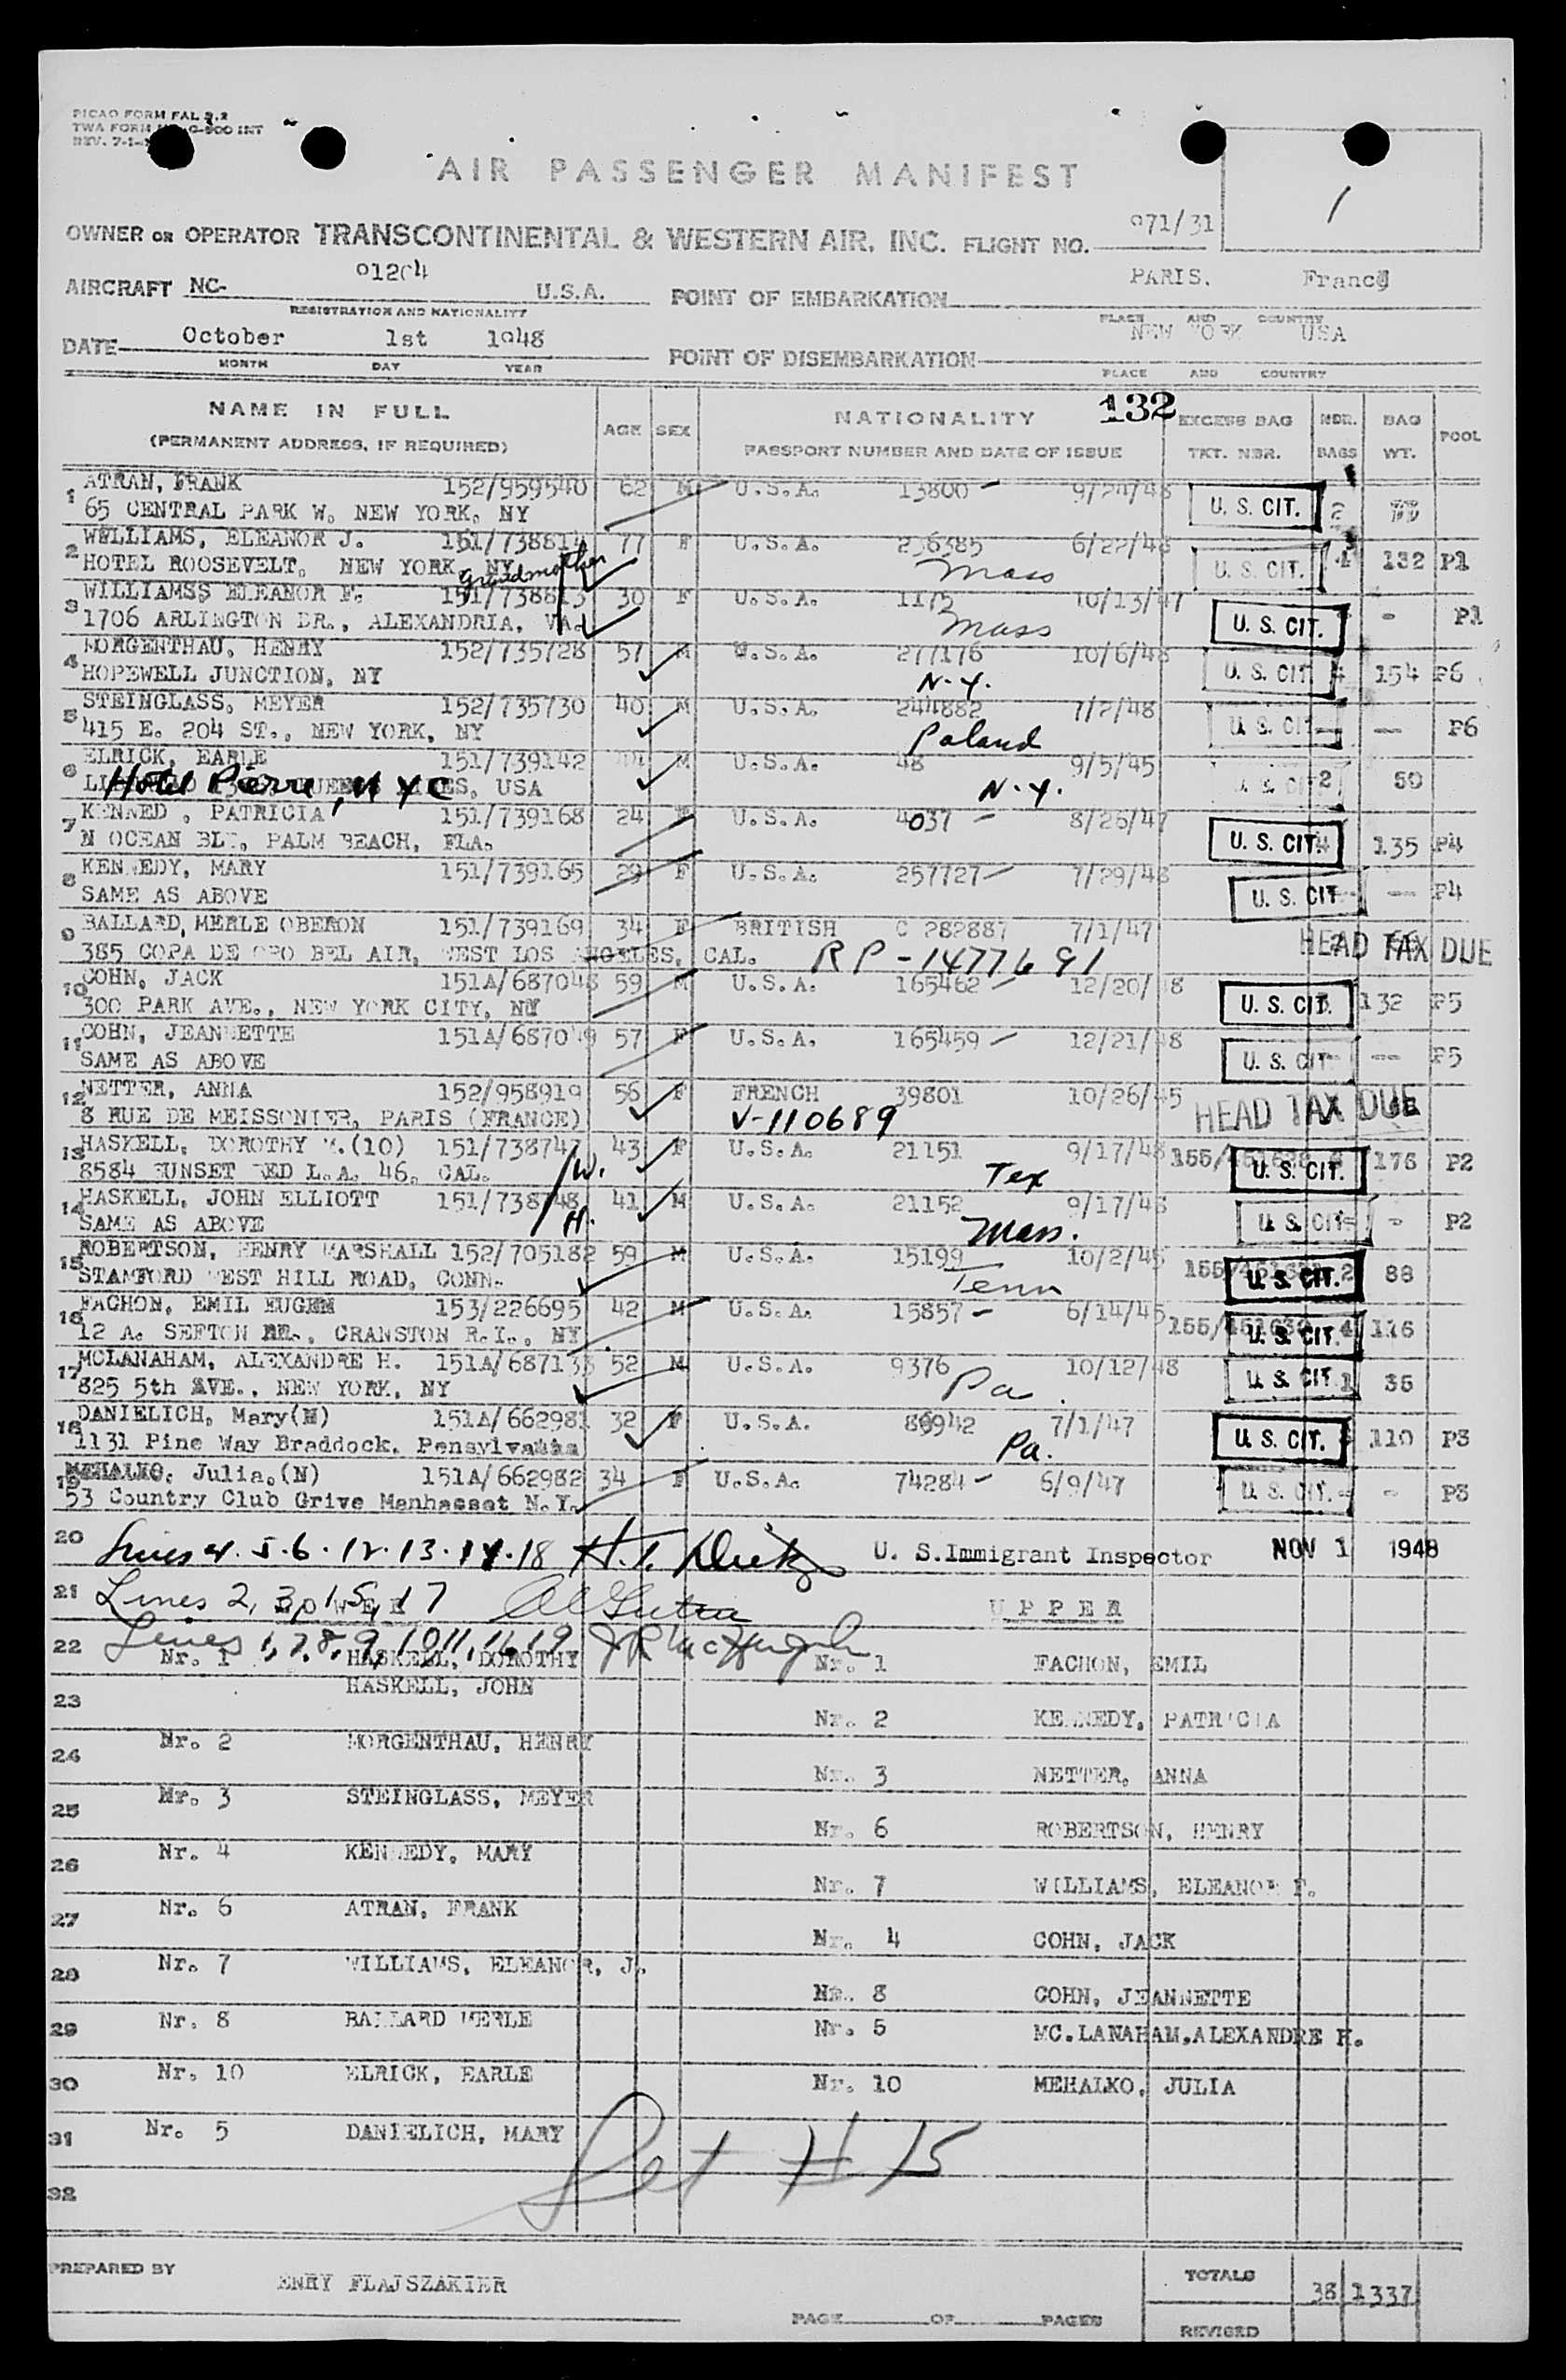 PICAO FORM FAL 2.2
TWA FORM
REV. 7-1-
AIR PASSENGER MANIFEST
1
OWNER OR OPERATOR TRANSCONTINENTAL & WESTERN AIR, INC. FLIGHT NO. 971/31
AIRCRAFT NC- 91204 U.S.A. POINT OF EMBARKATION PARIS. France
REGISTRATION AND NATIONALITY PLACE AND COUNTRY
DATE October 1st 1948 POINT OF DISEMBARKATION NEW YORK USA
MONTH DAY YEAR PLACE AND COUNTRY
NAME IN FULL AGE SEX NATIONALITY 132 EXCESS BAG NBR. BAG POOL
(PERMANENT ADDRESS, IF REQUIRED) PASSPORT NUMBER AND DATE OF ISSUE TKT. NBR. BAGS WT.
1 ATRAN, FRANK 152/959540 62 M U.S.A. 13800 9/20/48 U. S. CIT. 2
65 CENTRAL PARK W. NEW YORK, NY
2 WELLIAMS, ELEANOR J. 151/738814 77 F U.S.A. 236385 6/22/48 U. S. CIT. 4 132 P1
HOTEL ROOSEVELT, NEW YORK, NY grandmother Mass
3 WILLIAMSS ELEANOR F. 151/738813 30 F U.S.A. 1175 10/13/47 U. S. CIT. - P1
1706 ARLINGTON DR., ALEXANDRIA, VA. Mass
4 MORGENTHAU, HENRY 152/735728 57 M U.S.A. 277176 10/6/48 U. S. CIT 4 154 P6
HOPEWELL JUNCTION, NY N.Y.
5 STEINGLASS, MEYER 152/735730 40 M U.S.A. 244882 7/2/48 U. S. CIT — P6
415 E. 204 ST., NEW YORK, NY Poland
6 ELRICK, EARLE 151/739142 M U.S.A. 48 9/5/45 U. S. CIT 2 50
Hotel Pierre, NYC USA N.Y.
7 KENNED , PATRICIA 151/739168 24 F U.S.A. 4037 8/26/47 U. S. CIT 4 135 P4
N OCEAN BL ., PALM BEACH, FLA.
8 KENNEDY, MARY 151/739165 29 F U.S.A. 257727 7/29/48 U. S. CIT — P4
SAME AS ABOVE
9 BALLARD, MERLE OBERON 151/739169 34 F BRITISH C 282887 7/1/47 HEAD TAX DUE
385 COPA DE ORO BEL AIR, WEST LOS ANGELES, CAL. RP-1477691
10 COHN, JACK 151A/687048 59 M U.S.A. 165462 12/20/48 U. S. CIT. 132 P5
300 PARK AVE., NEW YORK CITY, NY
11 COHN, JEANNETTE 151A/687049 57 F U.S.A. 165459 12/21/48 U. S. CIT — P5
SAME AS ABOVE
12 NETTER, ANNA 152/958919 56 F FRENCH 39801 10/26/45 HEAD TAX DUE
8 RUE DE MEISSONIER, PARIS (FRANCE) V-110689
13 HASKELL, DOROTHY (10) 151/738747 43 F U.S.A. 21151 9/17/48 U. S. CIT. 176 P2
8584 SUNSET L.A. 46, CAL. W. Tex
14 HASKELL, JOHN ELLIOTT 151/738748 41 M U.S.A. 21152 9/17/48 U. S. CIT - P2
SAME AS ABOVE H. Mass.
15 ROBERTSON, HENRY MARSHALL 152/705182 59 M U.S.A. 15199 10/2/45 U. S. CIT. 2 88
STAMFORD WEST HILL ROAD, CONN. Tenn
16 FACHON, EMIL EUGEN 153/226695 42 M U.S.A. 15857 6/14/45 U. S. CIT. 4 116
12 A. SEFTON , CRANSTON R.I., NY
17 MCLANAHAM, ALEXANDRE H. 151A/687133 52 M U.S.A. 9376 10/12/48 U. S. CIT 1 35
825 5th AVE., NEW YORK, NY Pa.
18 DANIELICH, Mary(N) 151A/662981 32 F U.S.A. 86942 7/1/47 U. S. CIT. 110 P3
1131 Pine Way Braddock, Pensylvania Pa.
19 MEHALKO, Julia.(N) 151A/662982 34 F U.S.A. 74284 6/9/47 U. S. CIT. - P3
53 Country Club Grive Manhasset N.Y.
20 Lines 4.5.6.12.13.14.18 U. S.Immigrant Inspector NOV 1 1948
21 Lines 2, 3, 15, 17 LOWER UPPER
22 Lines 1, 7, 8, 9, 10 11, 16 19
Nr. 1 HASKELL, DOROTHY Nr. 1 FACHON, EMIL
HASKELL, JOHN
23 Nr. 2 KENNEDY, PATRICIA
24 Nr. 2 MORGENTHAU, HENRY Nr. 3 NETTER, ANNA
25 Nr. 3 STEINGLASS, MEYER Nr. 6 ROBERTSON, HENRY
26 Nr. 4 KENNEDY, MARY Nr. 7 WILLIAMS, ELEANOR F.
27 Nr. 6 ATRAN, FRANK Nr. 4 COHN, JACK
28 Nr. 7 WILLIAMS, ELEANOR, J. Nr. 8 COHN, JEANNETTE
29 Nr. 8 BALLARD MERLE Nr. 5 MC.LANAHAM,ALEXANDRE H.
30 Nr. 10 ELRICK, EARLE Nr. 10 MEHALKO, JULIA
31 Nr. 5 DANIELICH, MARY
32
PREPARED BY ENRY FLAJSZAKIER TOTALS 38 1337
PAGE OF PAGES REVISED